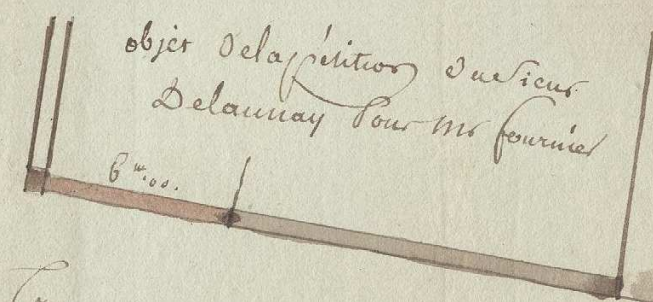 objet Delapétition du Sieur
Delaunay Pour Mr fournier
6 m. 00.